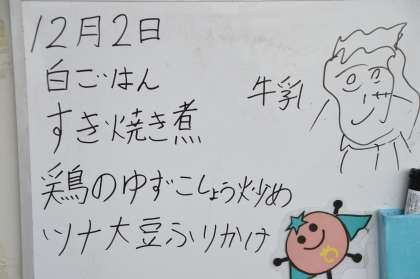 12月2日
白ごはん
牛乳
すき焼き煮
鶏のゆずこしょう炒め
ツナ大豆ふりかけ